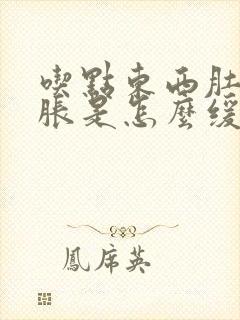 喫點東西肚
脹是怎麼緩
鳳席英